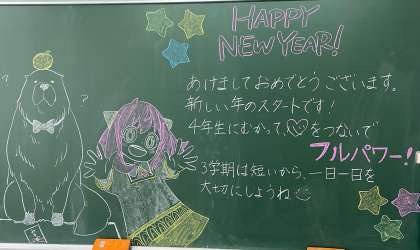 HAPPY
NEW YEAR!
あけましておめでとうございます。
新しい年のスタートです!
4年生にむかって、♡をつないで
フルパワー!
3学期は短いから、一日一日を
大切にしようね
? ?